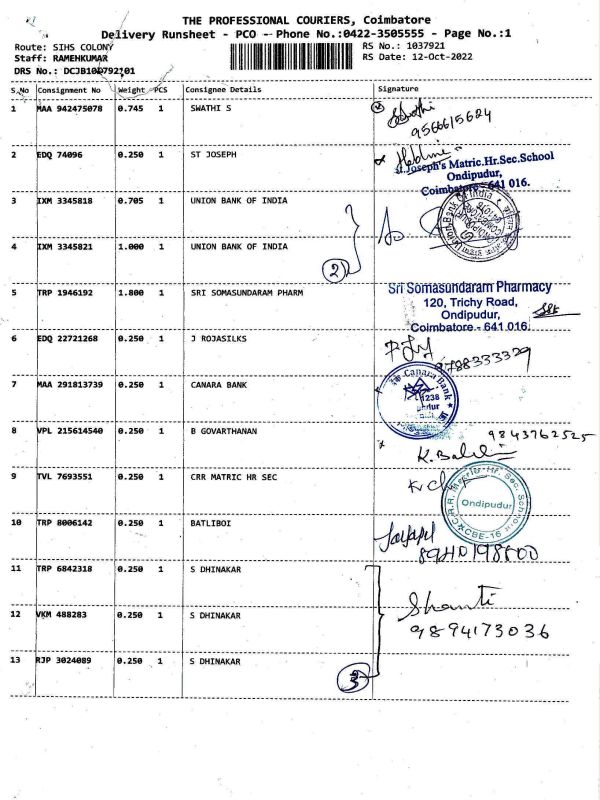 THE PROFESSIONAL COURIERS, Coimbatore
Delivery Runsheet - PCO - Phone No.:0422-3505555 - Page No.:1
Route: SIHS COLONY
Staff: RAMEHKUMAR
RS No.: 1037921
RS Date: 12-Oct-2022
S.No Consignment No Weight PCS Consignee Details Signature
1 MAA 942475078 0.745 1 SWATHI S
Swathi
9566615624
2 EDQ 74096 0.250 1 ST JOSEPH
St.Joseph's Matric.Hr.Sec.School
Ondipudur,
Coimbatore - 641 016.
3 IXM 3345818 0.705 1 UNION BANK OF INDIA
4 IXM 3345821 1.000 1 UNION BANK OF INDIA
2
Union Bank Of India
5 TRP 1946192 1.800 1 SRI SOMASUNDARAM PHARM
Sri Somasundaram Pharmacy
120, Trichy Road,
Ondipudur,
Coimbatore - 641 016.
6 EDQ 22721268 0.250 1 J ROJASILKS
9788333329
7 MAA 291813739 0.250 1 CANARA BANK
Canara Bank
8 VPL 215614540 0.250 1 B GOVARTHANAN
9843762525
9 TVL 7693551 0.250 1 CRR MATRIC HR SEC
Ondipudur
CBE-16
10 TRP 8006142 0.250 1 BATLIBOI
11 TRP 6842318 0.250 1 S DHINAKAR
12 VKM 488283 0.250 1 S DHINAKAR
Shanti
9894173036
13 RJP 3024089 0.250 1 S DHINAKAR
3